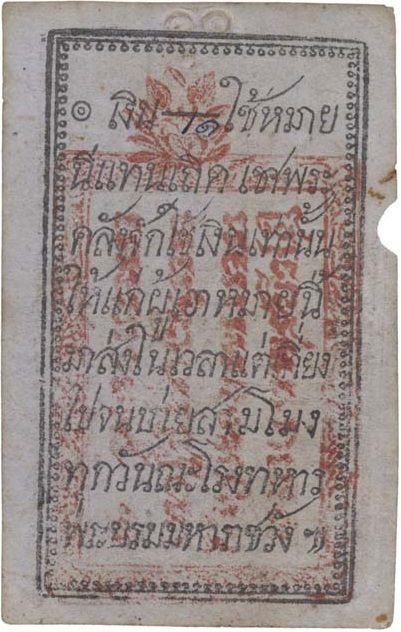 ๏ เงิน ๅ๑ ใช้หมาย
นี่แทนเถิด เชิญพระ
คลังก็ใช้เงินเท่านั้น
ให้แก่ผู้เอาหมายนี้
มาส่งในเวลาแต่เที่ยง
ไปจนบ่ายสามโมง
ทุกวันณะโรงทหาร
พระบรมมหาราชวัง ๚